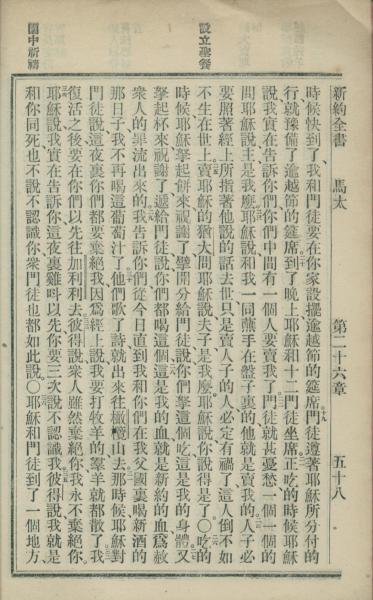 新約全書　馬太　第二十六章　五十八
時候快到了、我和門徒要在你家設擺逾越節的筵席、門徒遵著耶穌所分付的
行、就豫備了逾越節的筵席○到了晚上耶穌和十二門徒坐席、正吃的時候耶穌
說我實在告訴你們、你們中間有一個人要賣我了、門徒就甚憂愁、一個一個的
問耶穌說、主是我麼、耶穌說和我一同蘸手在盤子裏的、他就是賣我的、人子必
要照著經上所指著他說的話去世、只是賣人子的人必定有禍了、這人倒不如
不生在世上、賣耶穌的猶大問耶穌說、夫子是我麼、耶穌說你說得是了○吃的
時候耶穌拏起餅來、祝謝了、擘開分給門徒說、你們拏這個吃、這是我的身體、又
拏起杯來祝謝了、遞給門徒說、你們都喝這個、這是我的血、就是新約的血、爲赦
衆人的罪流出來的、我告訴你們、從今日直到我和你們在我父國裏喝新酒的
那日子、我不再喝這葡萄汁了、他們歌了詩就出來往橄欖山去、那時候耶穌對
門徒說、這夜裏你們都要棄絕我、因爲經上說、我要打牧羊的、羣羊就都散了、我
復活之後要在你們以先往加利利去、彼得說、衆人雖然棄絕你、我永不棄絕你、
耶穌說、我實在告訴你、這夜裏雞叫以先、你要三次說不認識我、彼得說、我就是
和你同死也不說不認識你、衆門徒也都如此說○耶穌和門徒到了一個地方、
設立聖餐
園中祈禱